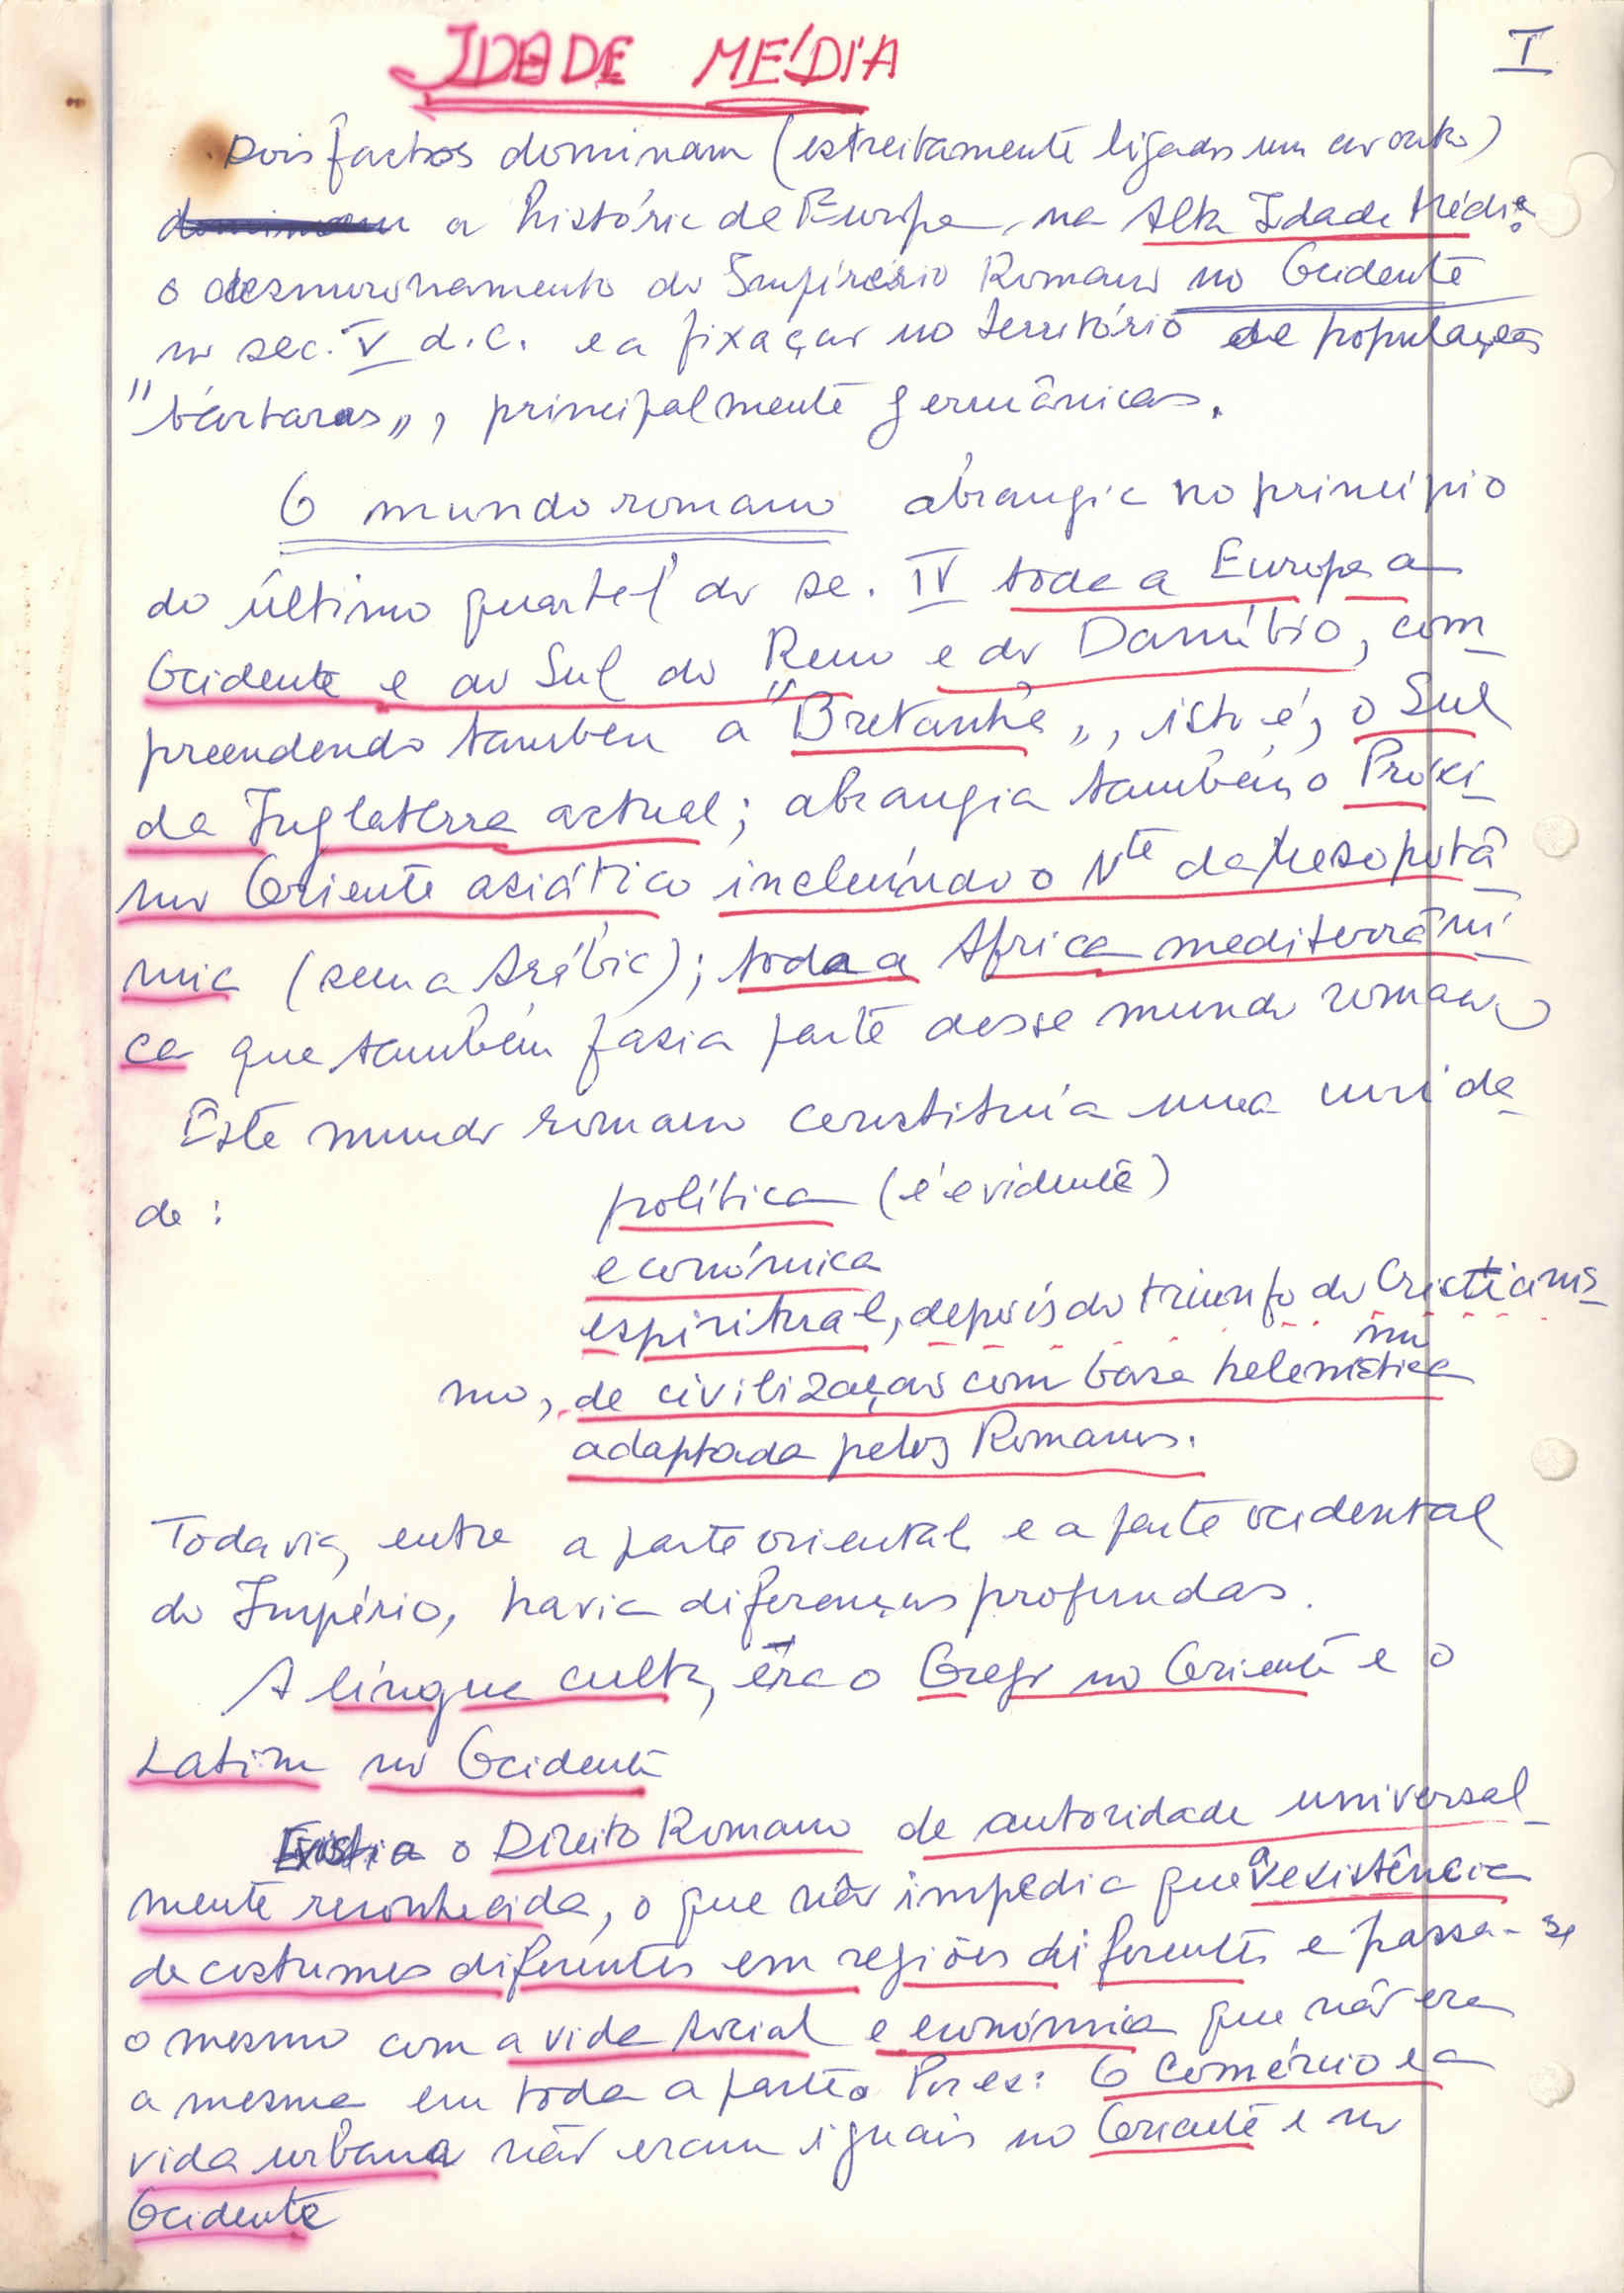 IDADE MÉDIA
I
Dois factos dominam (estreitamente ligados um ao outro)
dominam a história da Europa, na Alta Idade Média:
o desmoronamento do Império Romano no Ocidente
no sec. V d.C. e a fixação no território de populações
"bárbaras", principalmente germânicas.
O mundo romano abrangia no princípio
do último quartel do se. IV toda a Europa a
Ocidente e ao Sul do Reno e do Danúbio, com-
preendendo tambem a "Bretanha", isto é, o Sul
da Inglaterra actual; abrangia também o Próxi-
mo Oriente asiático incluíndo o Nte da Mesopotâ-
mia (sem a Arábia); toda a Africa mediterrâni-
ca que também fazia parte desse mundo romano
Este mundo romano constituía uma unida-
de :
política (é evidente)
económica
espiritual, depois do triunfo do Cristianis-
mo, de civilização com base helenística
adaptada pelos Romanos.
Todavia, entre a parte oriental e a parte ocidental
do Império, havia diferenças profundas.
A língua culta, era o Grego no Oriente e o
Latim no Ocidente
Existia o Direito Romano de autoridade universal-
mente reconhecida, o que não impedia que a existência
de costumes diferentes em regiões diferentes e passa-se
o mesmo com a vida social e económica que não era
a mesma em toda a parte. Por ex: O Comércio e a
vida urbana não eram iguais no Oriente e no
Ocidente